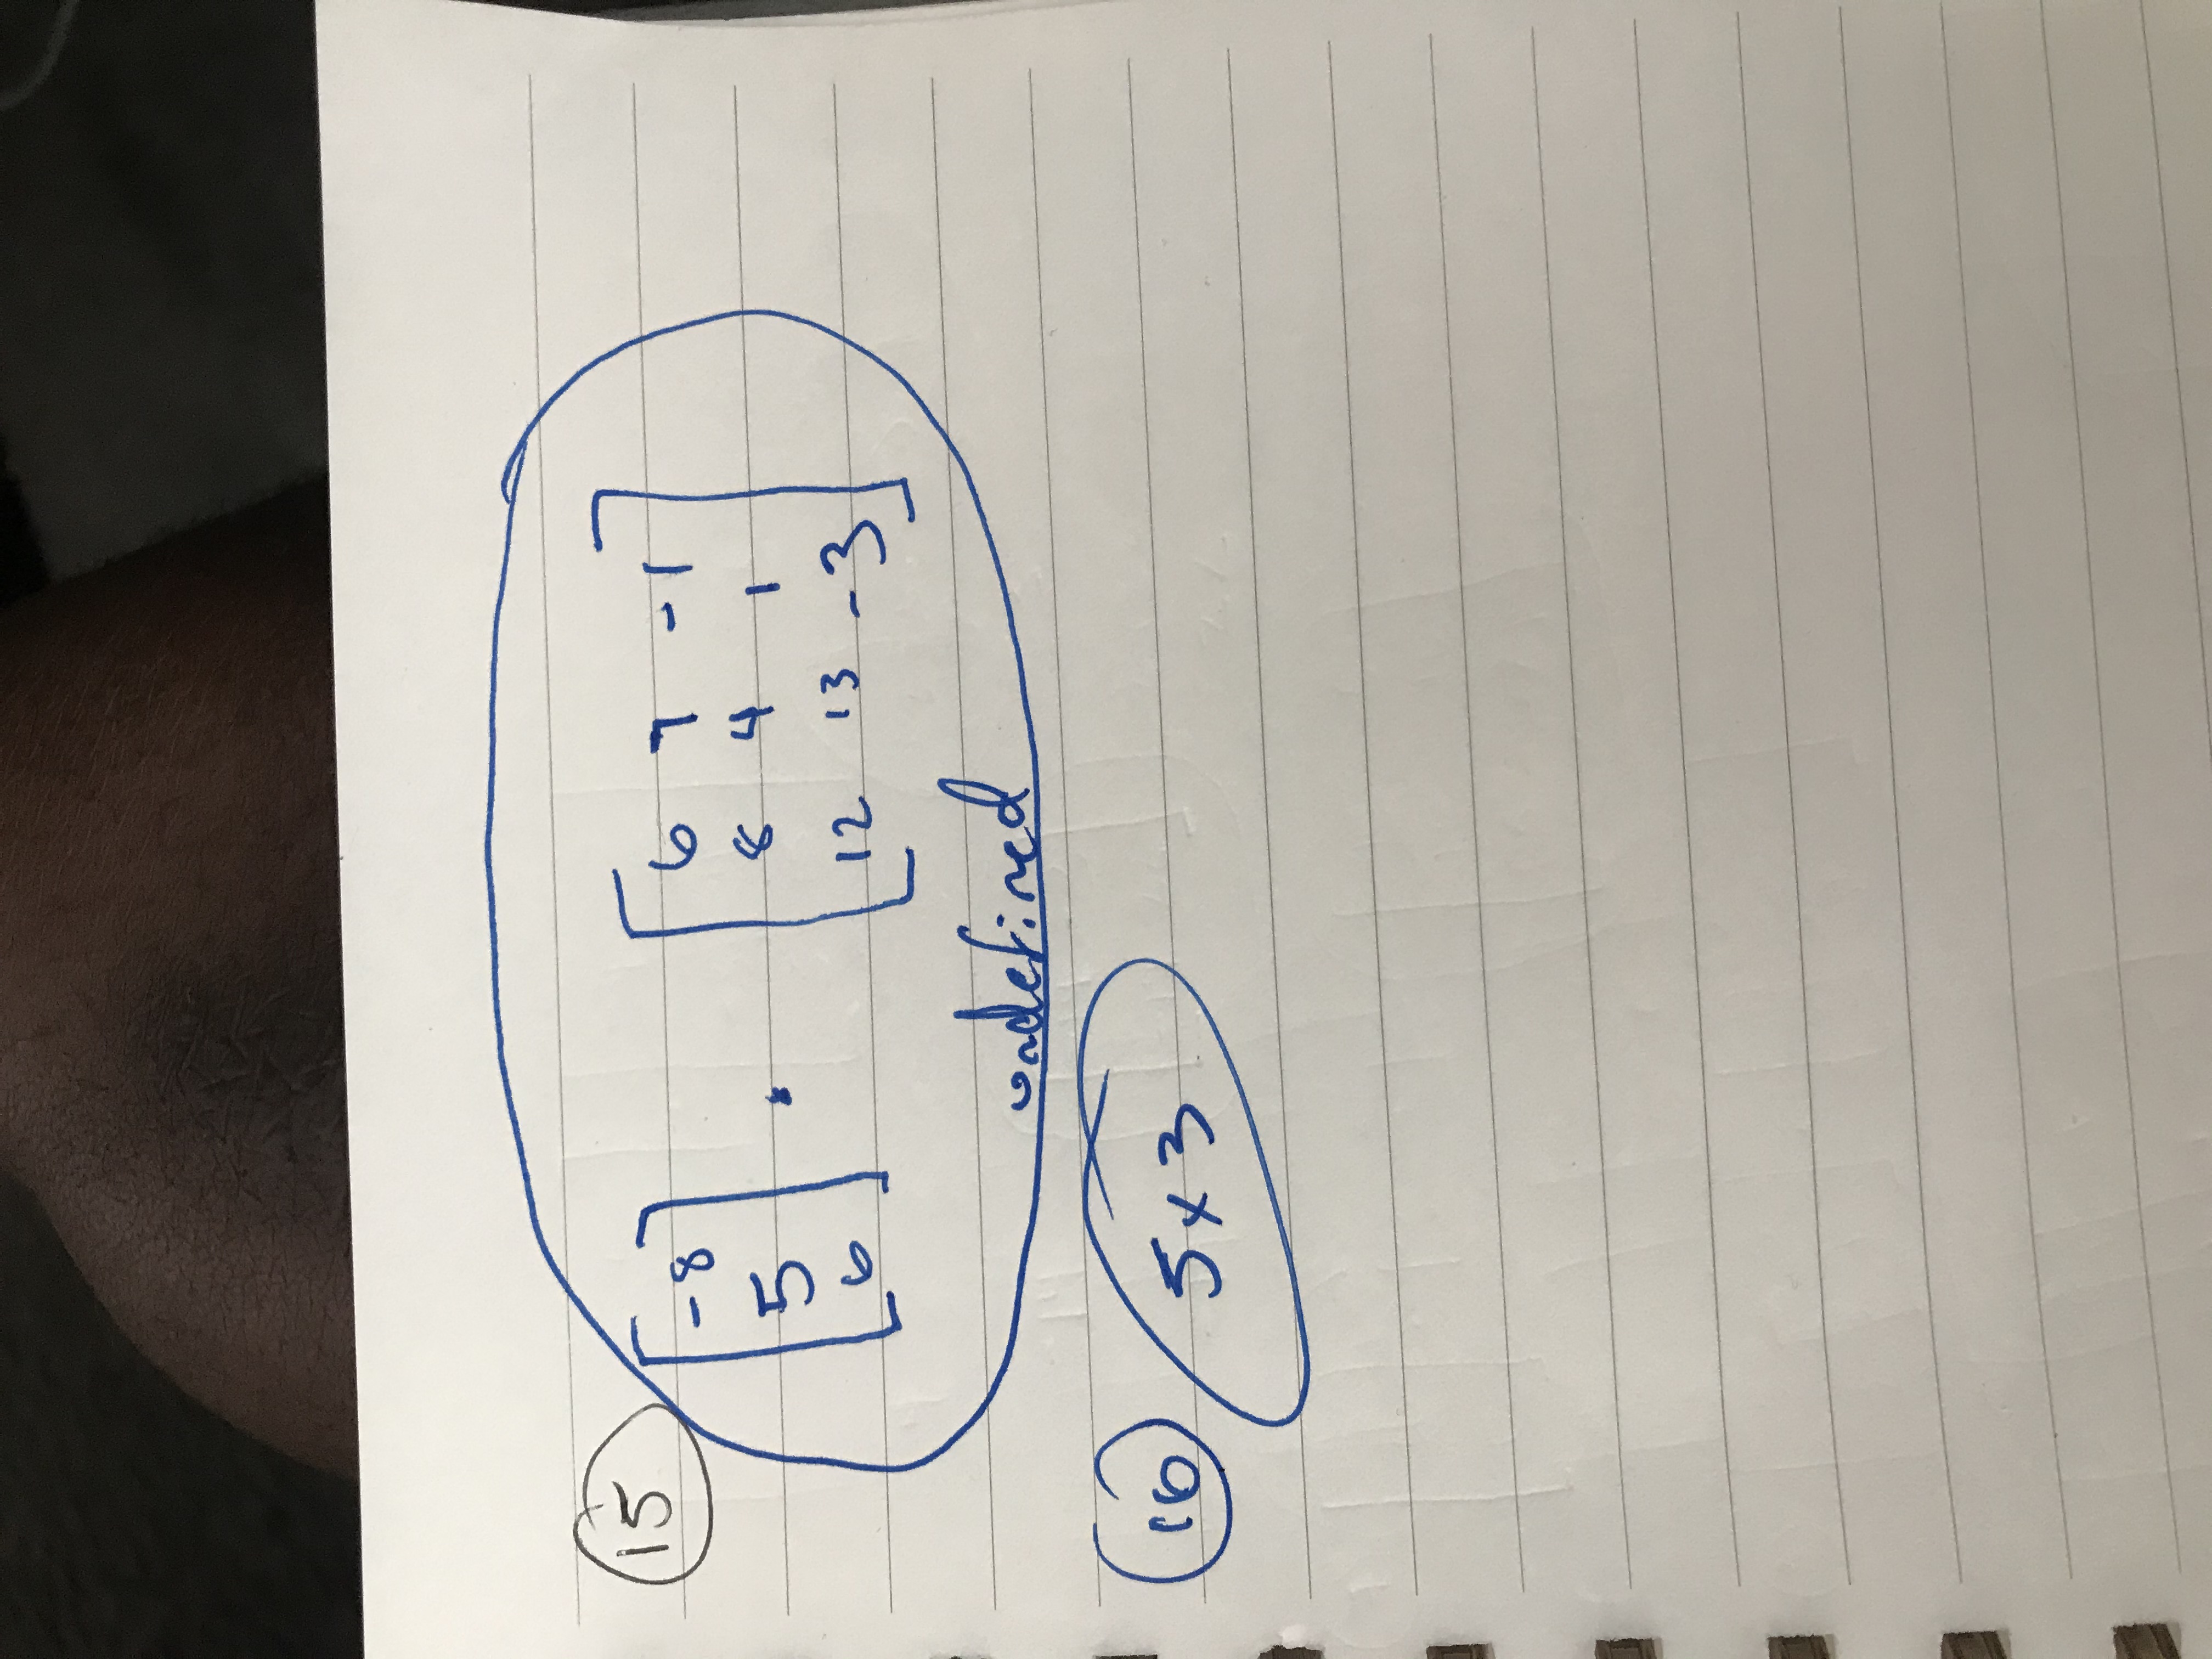 15
-8 6 7 -1
5 . 8 4 1
6 12 13 -3
undefined
16 5x3